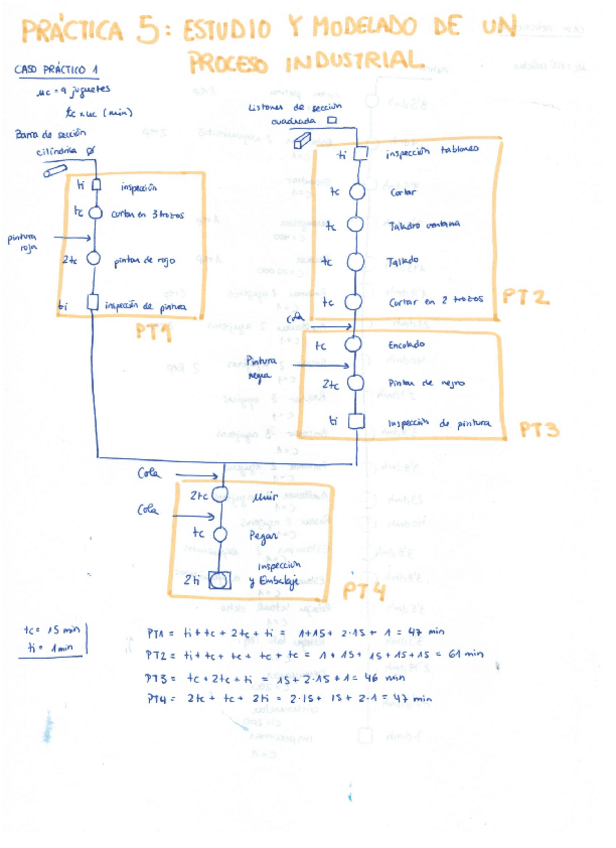 PRÁCTICA 5: ESTUDIO Y MODELADO DE UN
PROCESO INDUSTRIAL
CASO PRÁCTICO 1
uc = 9 juguetes
tc x uc (min)
Barra de sección
cilíndrica ø
ti inspección
tc cortar en 3 trozos
pintura
roja
2tc pintar de rojo
ti inspección de pintura
PT1
Listones de sección
cuadrada □
ti inspección tablones
tc Cortar
tc Taladro ventana
tc Taladro
tc Cortar en 2 trozos
PT2
Cola
tc Encolado
Pintura
negra
2tc Pintar de negro
ti Inspección de pintura
PT3
Cola
2tc Unir
Cola
tc Pegar
Inspección
2ti y Embalaje
PT4
tc = 15 min
ti = 1 min
PT1 = ti + tc + 2tc + ti = 1+15+ 2·15+ 1 = 47 min
PT2 = ti + tc + tc + tc + tc = 1 + 15+ 15 + 15+15 = 61 min
PT3 = tc + 2tc + ti = 15 + 2·15 + 1 = 46 min
PT4 = 2tc + tc + 2ti = 2·15 + 15 + 2·1 = 47 min